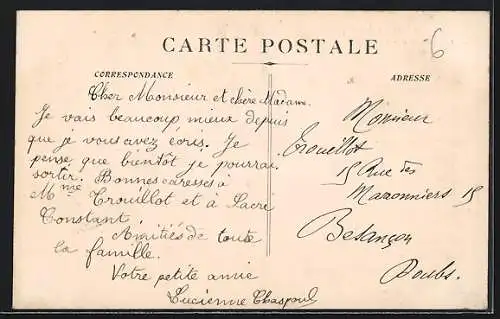 CARTE POSTALE
6
CORRESPONDANCE
ADRESSE
Cher Monsieur et chère Madame.
Je vais beaucoup mieux depuis
que je vous avez écris. Je
pense que bientôt je pourrai
sortir. Bonnes caresses à
Mme Trouillot et à Sacré
Constant.
Amitiés de toute
la famille.
Votre petite amie
Lucienne
Monsieur
Trouillot
15 Rue des
Maronniers 15
Besançon
Doubs.